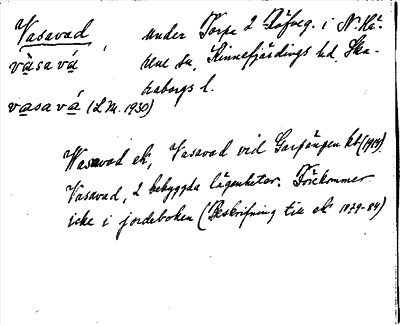 Vasavad, under Torpa 2 Råfveg. i N. Hä-
vàsavá rene sn, Kinnefjärdings hd, Ska-
raborgs l.
vasavá (L.M. 1930)
Wasavad ek, Vasavad vid Garpången kb (1914)
Vasavad, 2 bebyggda lägenheter. Förekommer
icke i jordeboken (Beskrifning till ek 1879-84)